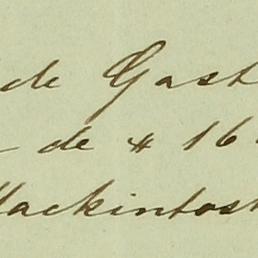 de Gast
de # 16
Mackintosh